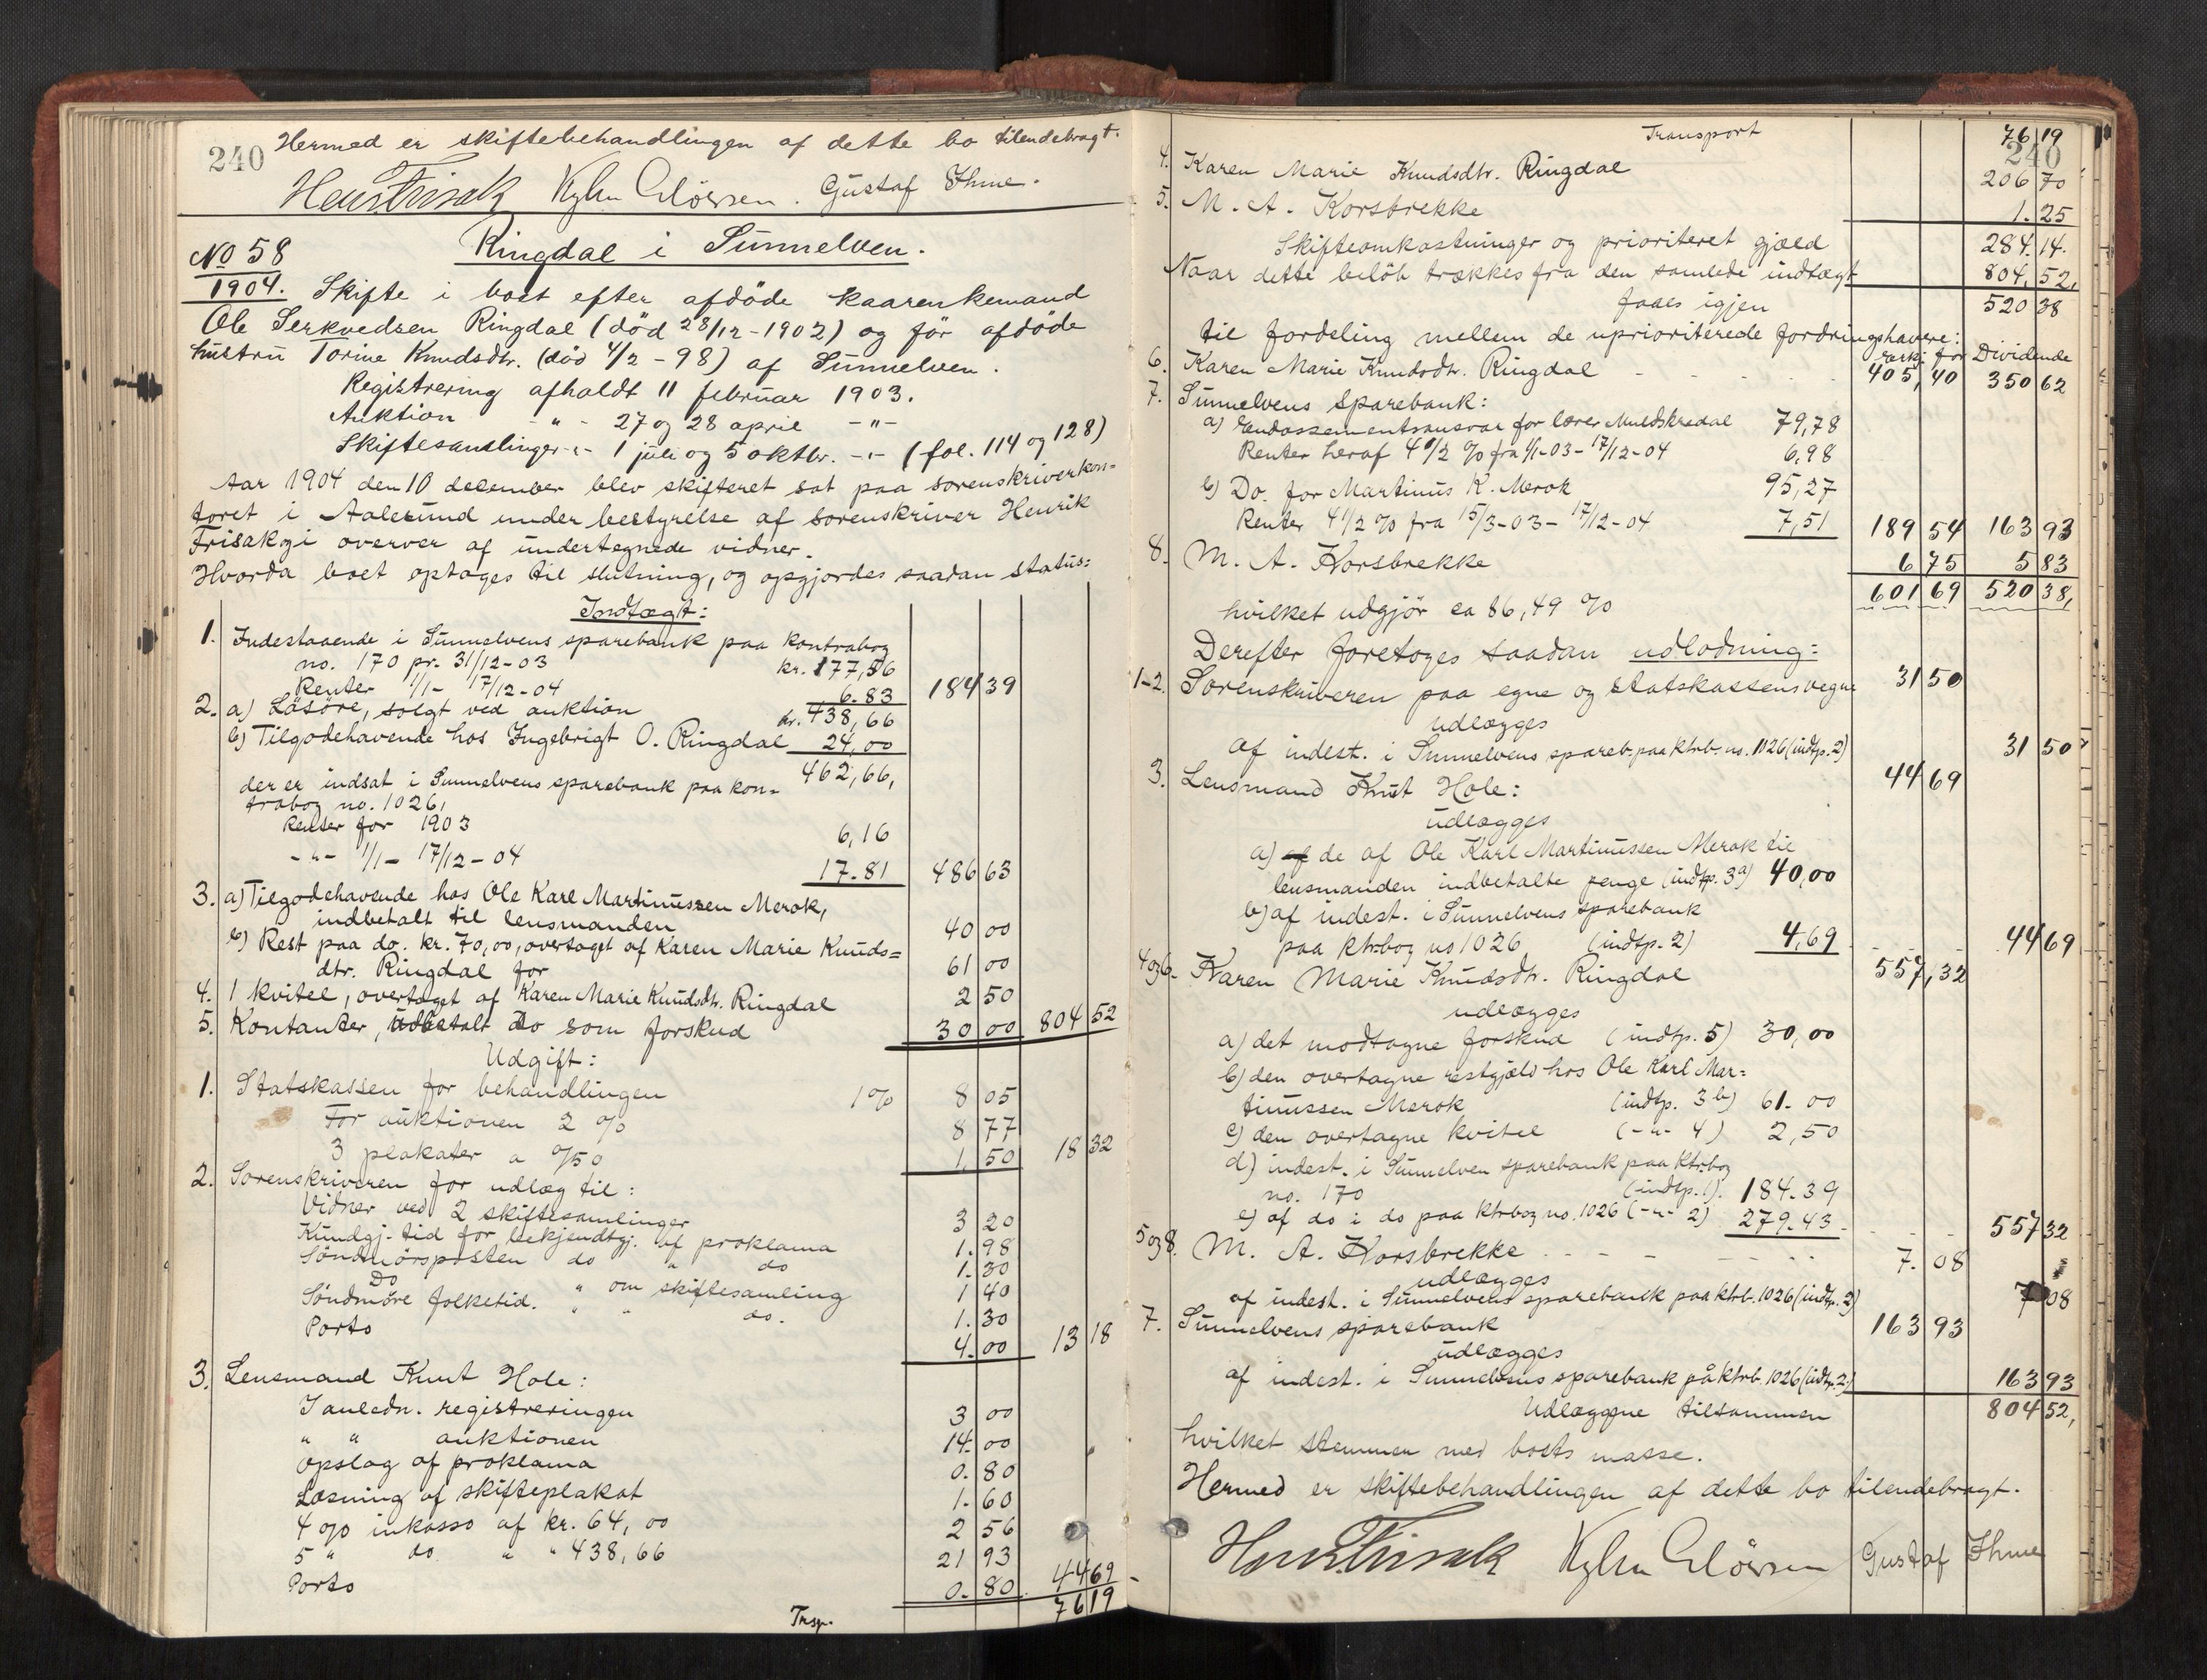 240 Hermed er skiftebehandlingen af dette bo tilendebragt.
Henr Frisak Gustaf Ihme.
No 58
1904.
Ringdal i Sunnelven.
Skifte i boet efter afdöde kaarenkemand
Ole Serkvedsen Ringdal (död 28/12-1902) og för afdöde
hustru Torine Knudsdtr. (död 4/2-98) af Sunnelven.
Registrering afholdt 11 februar 1903.
Auktion -"- 27 og 28 april -"-
Skiftesamlinger -"- 1 juli og 5 oktbr. -"- (fol. 114 og 128)
Aar 1904 den 10 december blev skifteret sat paa sorenskriverkon=
toret i Aalesund under bestyrelse af sorenskriver Henrik
Frisak og i overver af undertegnede vidner.
Hvorda boet optoges til slutning, og opgjordes saadan status:
Indtægt:
1. Indestaaende i Sunnelvens sparebank paa kontrabog
no. 170 pr. 31/12-03 kr. 177,56
Renter 1/1- 17/12-04 6.83 184 39
2. a) Lösöre, solgt ved auktion kr. 438,66
b) Tilgodehavende hos Ingebrigt O. Ringdal 24,00
462,66,
der er indsat i Sunnelvens sparebank paa kon=
trabog no. 1026,
Renter for 1903 6,16
-"- 1/1- 17/12-04 17.81 486 63
3. a) Tilgodehavende hos Ole Karl Martinussen Merok,
indbetalt til lensmanden 40 00
b) Rest paa do. kr. 70,00, overtaget af Karen Marie Knuds=
dtr. Ringdal for 61 00
4. 1 kvitel, overtaget af Karen Marie Knudsdtr. Ringdal 2 50
5. Kontanter, udbetalt do som forskud 30 00 804 52
Udgift:
1. Statskassen for behandlingen 1% 8 05
For auktionen 2 % 8 77
3 plakater a 0/50 1,50 18 32
2. Sorenskriveren for udlæg til:
Vidner ved 2 skiftesamlinger 3 20
Kundgj.tid for bekjendtgj. af proklama 1.98
Söndmörsposten do " do 1.30
Do " om skiftesamling 1 40
Söndmöre folketid. " " do. 1.30
Porto 4.00 13 18
3. Lensmand Knut Hole:
I anledn. registreringen 3 00
" " auktionen 14.00
Opslag af proklama 0.80
Læsning af skifteplakat 1.60
4 % inkasso af kr. 64,00 2 56
5 " do. " " 438,66 21 93
Porto 0.80 44 69
Trsp. 76 19
Transport 76 19
240
4. Karen Marie Knudsdtr. Ringdal 206 70
5. M. A. Korsbrekke 1.25
Skifteomkostninger og prioriteret gjæld 284.14.
Naar dette belöb trækkes fra den samlede indtægt 804,52,
faaes igjen 520 38
til fordeling mellem de uprioriterede fordringshavere:
for Dividende
6. Karen Marie Knudsdtr. Ringdal 405,40 350 62
7. Sunnelvens Sparebank:
a) Endossementsansvar for lærer Muldskredal 79,78
Renter heraf 4 1/2 % fra 1/1-03-17/12-04 6,98
b) Do. for Martinus K. Merok 95,27
Renter 4 1/2 % fra 15/3-03-17/12-04 7,51 189 54 163 93
8. M. A. Korsbrekke 6 75 5 83
601 69 520 38,
hvilket udgjör ca 86,49 %
Derefter foretoges saadan udlodning:
1-2. Sorenskriveren paa egne og Statskassens vegne 31 50
udlægges
af indest. i Sunnelvens spareb. paa ktrb. no. 1026 (indtp. 2) 31 50
3. Lensmand Knut Hole: 44 69
udlægges
a) de af Ole Karl Martinussen Merok til
lensmanden indbetalte penge (indtp. 3a) 40,00
b) af indest. i Sunnelvens sparebank
paa ktrbog no 1026 (indtp. 2) 4,69 44 69
4 og 6. Karen Marie Knudsdtr. Ringdal 557,32
udlægges
a) det modtagne forskud (indtp. 5) 30,00
b) den overtagne restgjæld hos Ole Karl Mar=
tinussen Merok (indtp. 3b) 61.00
c) den overtagne kvitel (-"- 4) 2,50
d) indest. i Sunnelven sparebank paa ktrbog
no. 170 (indtp. 1). 184.39
e) af do i do paa ktrbog no. 1026 (-"- 2) 279.43 557 32
5 og 8. M. A. Korsbrekke 7.08
udlægges
af indest. i Sunnelvens sparebank paa ktrb. 1026 (indtp. 2) 7 08
7. Sunnelvens sparebank 163 93
udlægges
af indest. i Sunnelvens sparebank på ktrb. 1026 (indtp. 2) 163 93
Udlæggene tilsammen 804 52,
hvilket stemmer med boets masse.
Hermed er skiftebehandlingen af dette bo tilendebragt.
Henr. Frisak Gustaf Ihme